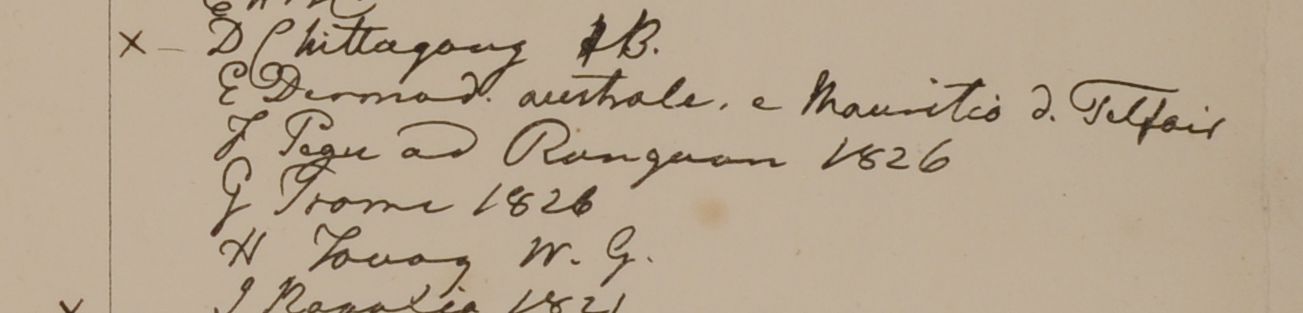 × – D Chittagong HB.
E Desmod. australe. e Mauritio d. Telfair
F Pegu ad Rangoon 1826
G Prome 1826
H Tavoy W. G.
× I Napalia 1821